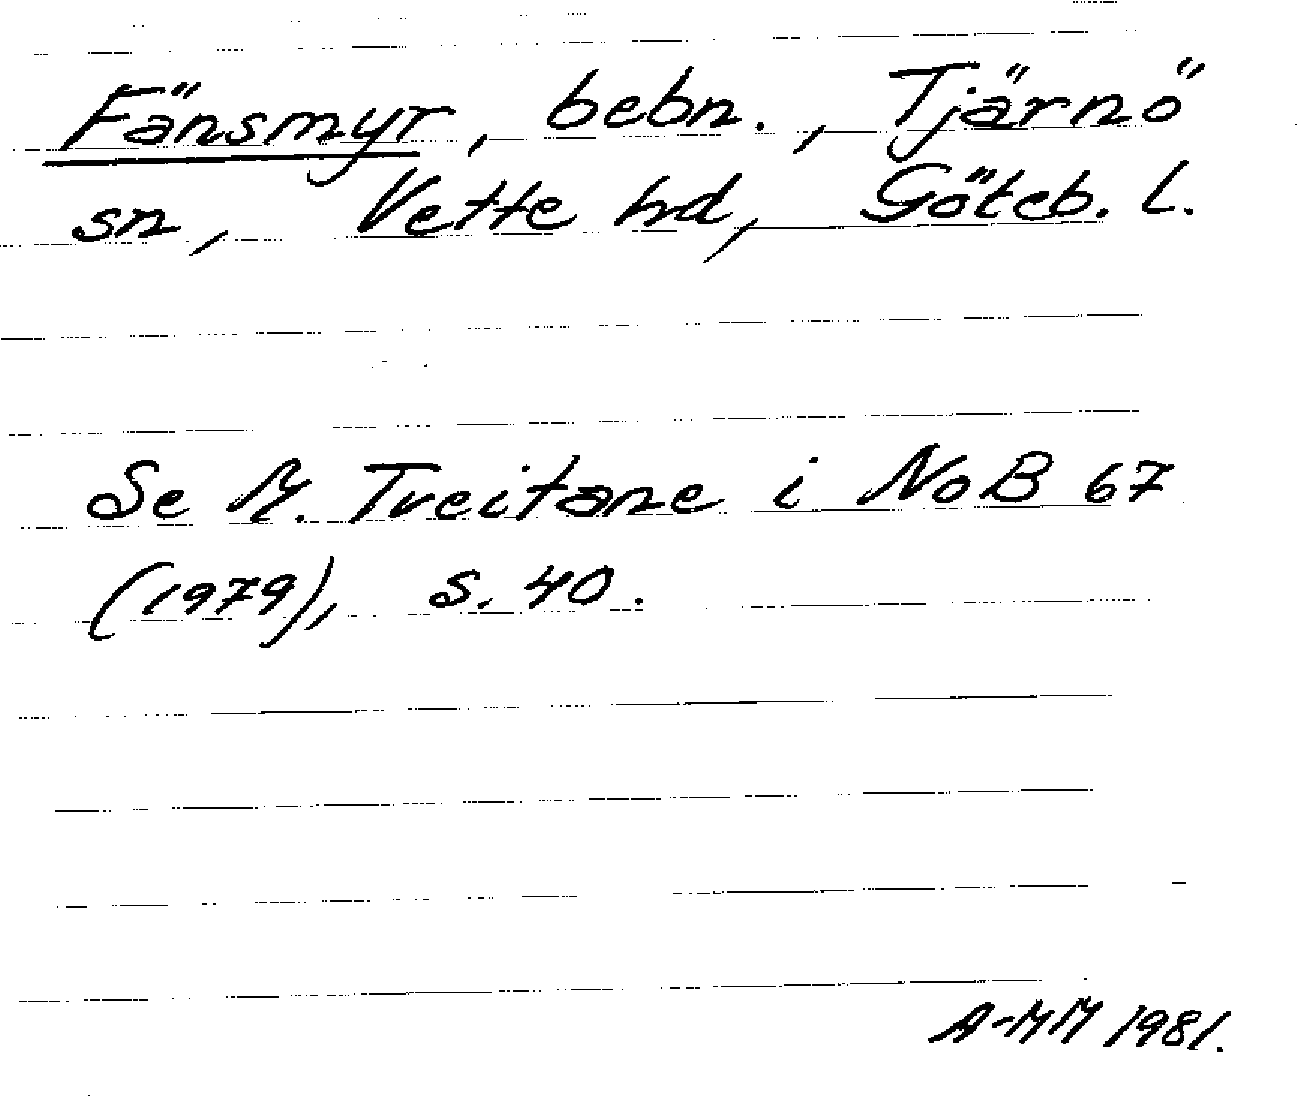 Fänsmyr, bebn., Tjärnö
sn, Vette hd, Göteb. l.
Se M. Tveitane i NoB 67
(1979), s. 40.
A-MM 1981.